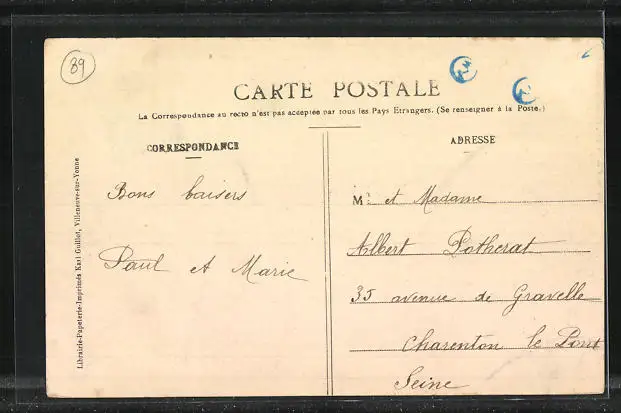 89
CARTE POSTALE
La Correspondance au recto n'est pas acceptée par tous les Pays Etrangers. (Se renseigner à la Poste.)
CORRESPONDANCE
Bons baisers
Paul et Marie
ADRESSE
M. et Madame
Albert Potherat
35 avenue de Gravelle
Charenton le Pont
Seine
Librairie-Papeterie-Imprimés Karl Guillot, Villeneuve-sur-Yonne